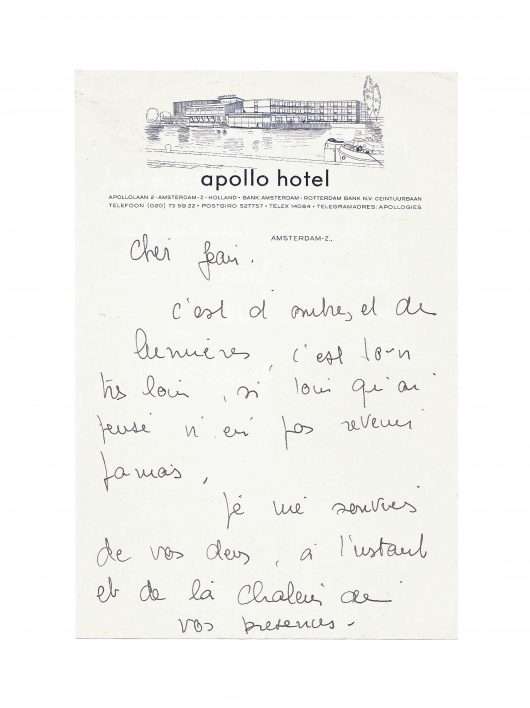 apollo hotel
APOLLOLAAN 2 · AMSTERDAM-Z · HOLLAND · BANK AMSTERDAM - ROTTERDAM BANK N.V. CEINTUURBAAN
TELEFOON (020) 73 59 22 · POSTGIRO 527757 · TELEX 14084 · TELEGRAMADRES: APOLLOGIES
AMSTERDAM-Z.,
Cher Jean.
c'est d'ombres et de
lumières, c'est loin
très loin, si loin qu'ai
pensé n'en pas revenir
jamais,
Je me souviens
de vos deux, à l'instant
et de la chaleur de
vos présences -